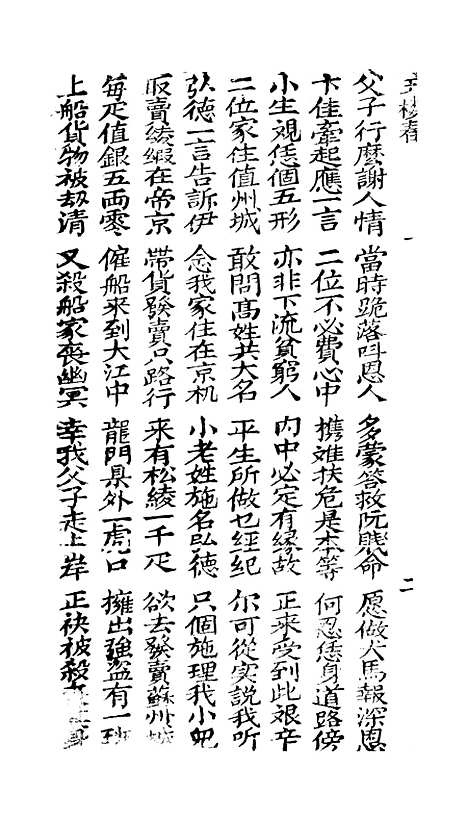 玉梅春 一 二
父子行麽謝人情 當時跪落呌恩人 多蒙答救阮賤命 愿做犬馬報深恩
卞佳牽起應一言 二位不必費心中 携难扶危是本等 何忍恁身道路傍
小生覌恁個五形 亦非下流貧窮人 内中必定有縁故 正来受到此艰辛
二位家住值州城 敢問高姓共大名 平生所做乜經紀 尔可從实説我听
弘德一言告訴伊 念我家住在京杭 小老姓施名弘德 只個施理我小兒
販賣綾緞在帝京 帶貨發賣只路行 来有松綾一千疋 欲去發賣蘇州城
每疋值銀五両零 僱船来到大江中 龍門县外一虎口 擁出強盗有一班
上船貨物被刼清 又殺船家喪幽冥 幸我父子走上岸 正袂被殺